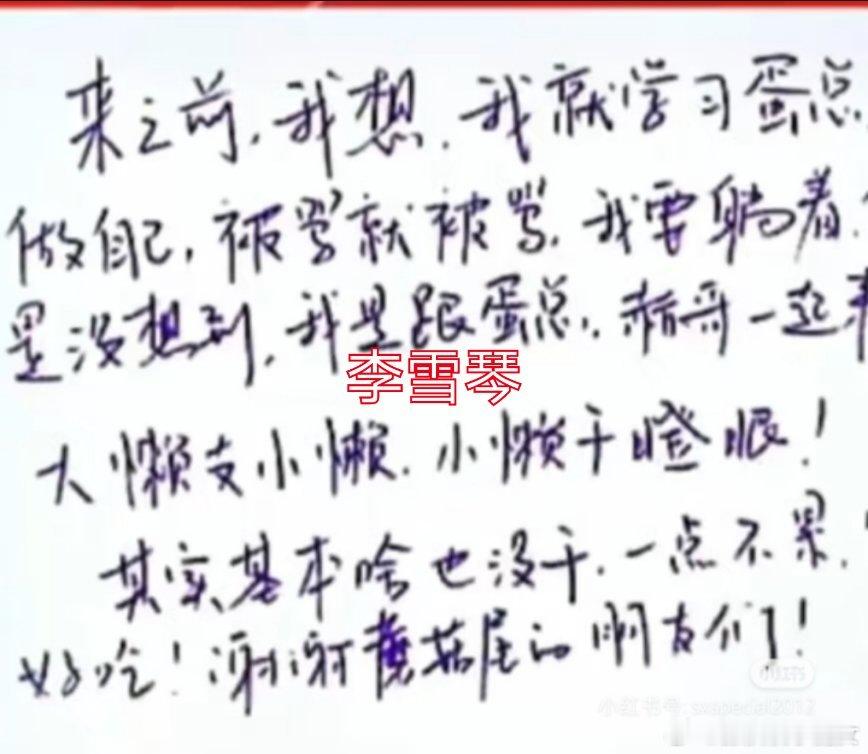 来之前，我想，我就学习蛋总
做自己，被骂就被骂，我要躺着
是没想到，我是跟蛋总，赫哥一起
李雪琴
大懒支小懒，小懒干瞪眼！
其实基本啥也没干，一点不累，
好吃！谢谢蘑菇屋的朋友们！
小红书
小红书号：sxspecial2012